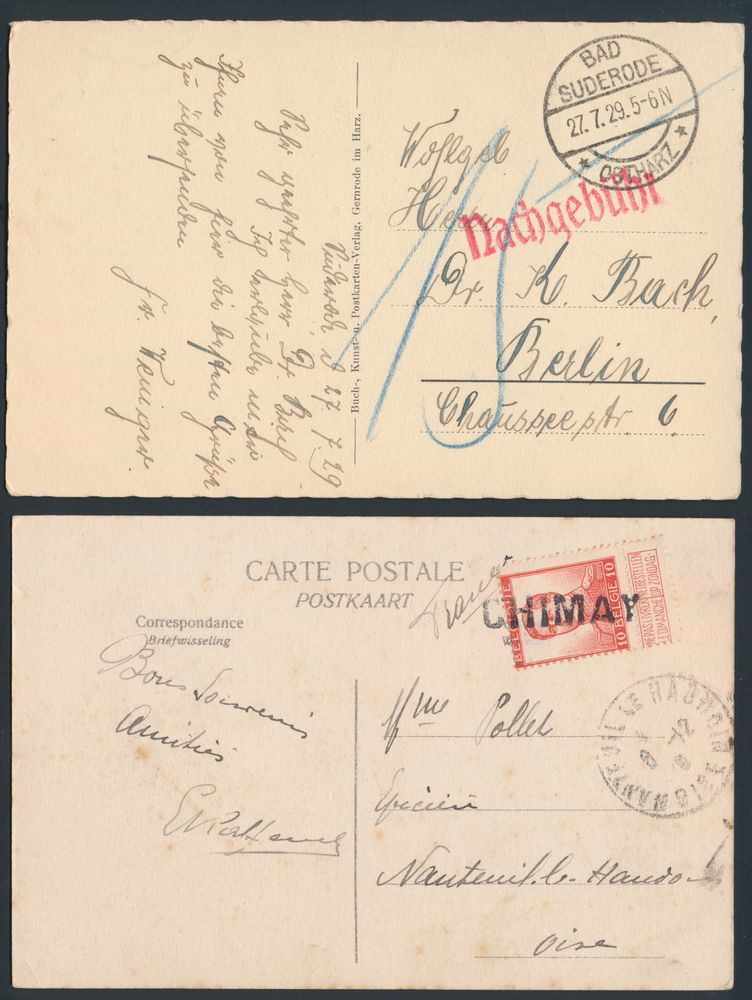 BAD
SUDERODE
27.7.29.5-6N
* OSTHARZ *
Nachgebühr
Suderode d 27.7.29
Sehr geehrter Herr Dr. Bach
Ihnen von hier die besten Grüße
zu übersenden
Fr.
Buch-, Kunst- u. Postkarten-Verlag, Gernrode im Harz.
Wohlgeb
Herrn
Dr. K. Bach,
Berlin
Chausseestr. 6
CARTE POSTALE
POSTKAART
Correspondance
Briefwisseling
France
CHIMAY
BELGIQUE 10
10 BELGIE 10
NE PAS LIVRER LE DIMANCHE
NIET BESTELLEN OP ZONDAG
NANTEUIL LE HAUDOIN
Bons Souvenirs
Amitiés
Mme Pollet
Epicière
Nanteuil-le-Haudo
Oise